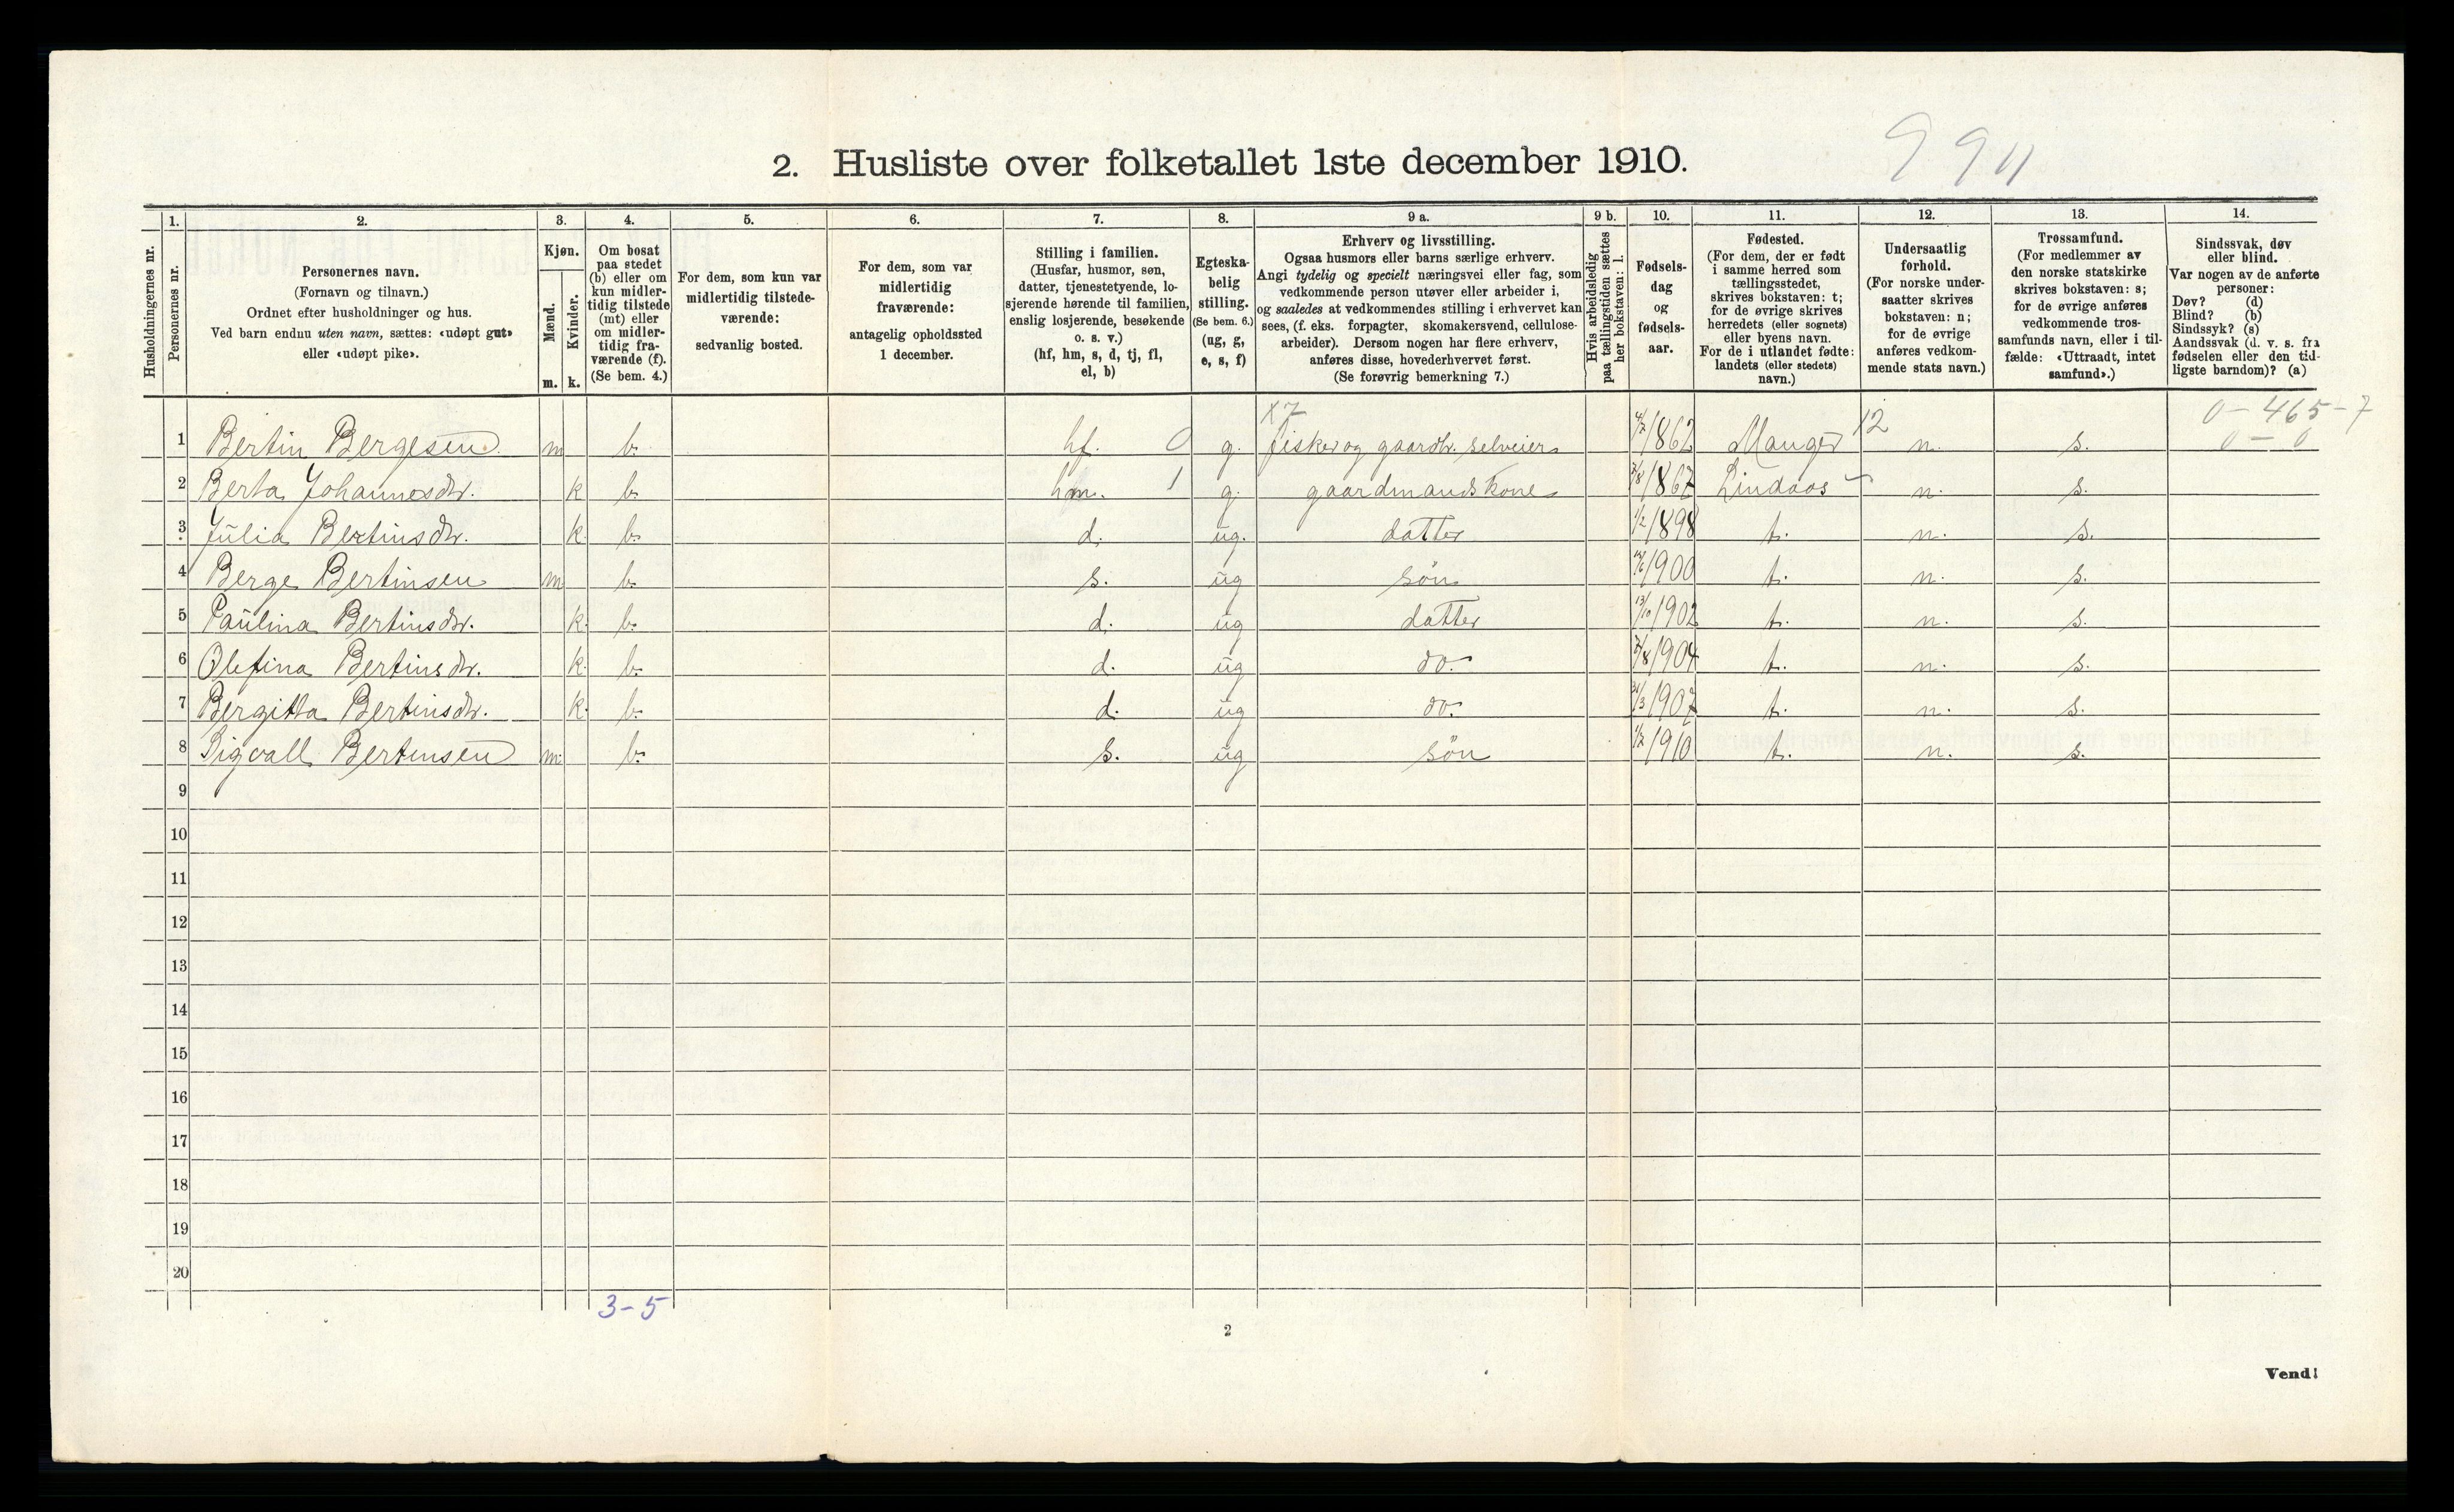 9 9 11
2. Husliste over folketallet 1ste december 1910.
Husholdningernes nr.
1. Personernes nr.
2. Personernes navn. (Fornavn og tilnavn.) Ordnet efter husholdninger og hus. Ved barn endnu uten navn, sættes: «udøpt gut» eller «udøpt pike».
3. Kjøn. Mænd. m. Kvinder. k.
4. Om bosat paa stedet (b) eller om kun midler-tidig tilstede (mt) eller om midler-tidig fra-værende (f). (Se bem. 4.)
5. For dem, som kun var midlertidig tilstede-værende: sedvanlig bosted.
6. For dem, som var midlertidig fraværende: antagelig opholdssted 1 december.
7. Stilling i familien. (Husfar, husmor, søn, datter, tjenestetyende, lo-sjerende hørende til familien, enslig losjerende, besøkende o. s. v.) (hf, hm, s, d, tj, fl, el, b)
8. Egteska-belig stilling. (Se bem. 6.) (ug, g, e, s, f)
9 a. Erhverv og livsstilling. Ogsaa husmors eller barns særlige erhverv. Angi tydelig og specielt næringsvei eller fag, som vedkommende person utøver eller arbeider i, og saaledes at vedkommendes stilling i erhvervet kan sees, (f. eks. forpagter, skomakersvend, cellulose-arbeider). Dersom nogen har flere erhverv, anføres disse, hovederhvervet først. (Se forøvrig bemerkning 7.)
9 b. Hvis arbeidsledig paa tællingstiden sættes her bokstaven: l.
10. Fødsels-dag og fødsels-aar.
11. Fødested. (For dem, der er født i samme herred som tællingsstedet, skrives bokstaven: t; for de øvrige skrives herredets (eller sognets) eller byens navn. For de i utlandet fødte: landets (eller stedets) navn.)
12. Undersaatlig forhold. (For norske under-saatter skrives bokstaven: n; for de øvrige anføres vedkom-mende stats navn.)
13. Trossamfund. (For medlemmer av den norske statskirke skrives bokstaven: s; for de øvrige anføres vedkommende tros-samfunds navn, eller i til-fælde: «Uttraadt, intet samfund».)
14. Sindssvak, døv eller blind. Var nogen av de anførte personer: Døv? (d) Blind? (b) Sindssyk? (s) Aandssvak (d. v. s. fra fødselen eller den tid-ligste barndom)? (a)
x7 12 0 - 465 - 7
1 Bertin Bergesen m b. hf. 0 g. fisker og gaardbr. selveier 4/7 1862 Manger n. s. 0 - 0
2 Berta Johannesdtr. k b. hm. 1 g. gaardmandskone 7/8 1867 Lindaas n. s.
3 Julia Bertinsdtr. k. b. d. ug. datter 1/2 1898 t. n. s.
4 Berge Bertinsen m b. s. ug søn 1900 t. n. s.
5 Paulina Bertinsdtr. k. b. d. ug datter 13/10 1902 t. n. s.
6 Olefina Bertinsdtr. k. b. d. ug do. 1904 t. n. s.
7 Bergitta Bertinsdtr. k. b. d. ug do. 31/3 1907 t. n. s.
8 Sigvall Bertinsen m. b. s. ug søn 1910 t. n. s.
9
10
11
12
13
14
15
16
17
18
19
20
3 - 5
2
Vend!